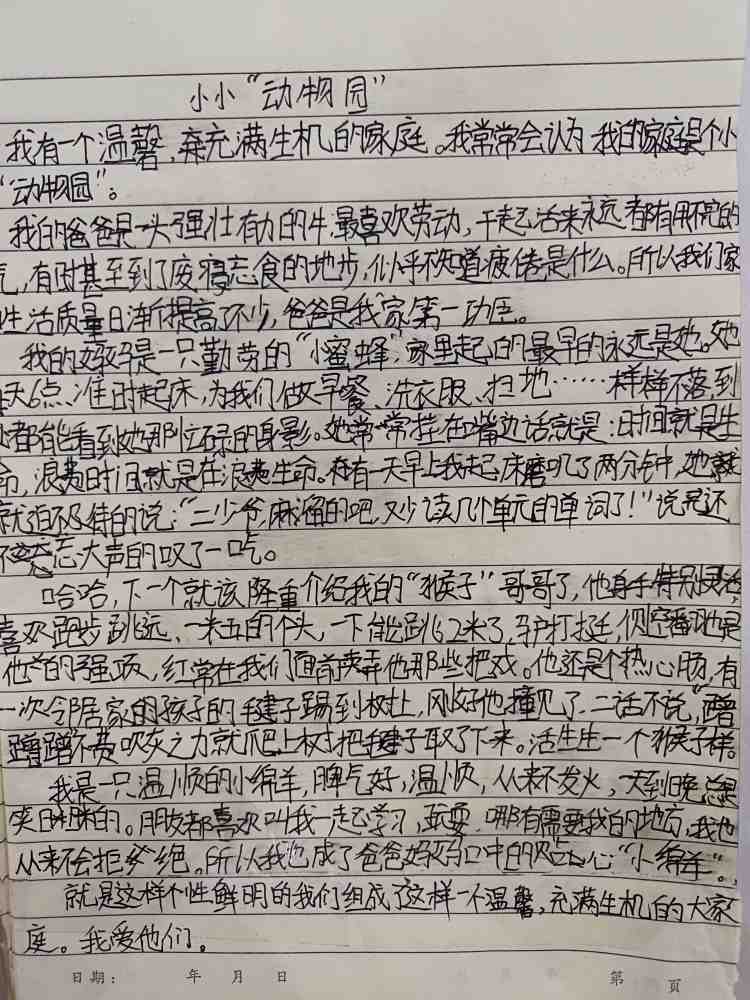 小小“动物园”
我有一个温馨,充满生机的家庭。我常常会认为我的家庭是个小
“动物园”。
我的爸爸是一头强壮有力的牛,最喜欢劳动,干起活来永远都有用不完的
气,有时甚至到了废寝忘食的地步,似乎不知道疲倦是什么。所以我们家
生活质量日渐提高不少,爸爸是我家第一功臣。
我的妈妈是一只勤劳的“小蜜蜂”,家里起的最早的永远是她。她
天6点准时起床,为我们做早餐、洗衣服、扫地……样样不落,到
处都能看到她那忙碌的身影。她常常挂在嘴边话就是:时间就是生
命,浪费时间就是在浪费生命。有一天早上我起床磨叽了两分钟,她就
就迫不及待的说:“二少爷,麻溜的吧,又少读几个单元的单词了!”说完还
不忘大声的叹了一口气。
哈哈,下一个就该隆重介绍我的“猴子”哥哥了,他身手特别灵活,
喜欢跑步跳远、一米五的个头,一下能跳1.62米了,鲈鱼打挺,侧空翻也是
他的强项,经常在我们面前卖弄他那些把戏。他还是个热心肠,有
一次邻居家的孩子的毽子踢到树上,刚好他撞见了.二话不说,“蹭
蹭蹭”不费吹灰之力就爬上树把毽子取了下来。活生生一个猴子样。
我是一只温顺的小绵羊,脾气好,温顺,从来不发火,一天到晚总是
笑眯眯的。朋友都喜欢叫我一起学习,玩耍.哪有需要我的地方,我也
从来不会拒绝。所以我也成了爸爸妈妈口中的贴心“小绵羊”。
就是这样个性鲜明的我们组成了这样一个温馨,充满生机的大家
庭。我爱他们。
日期: 年 月 日 第 页